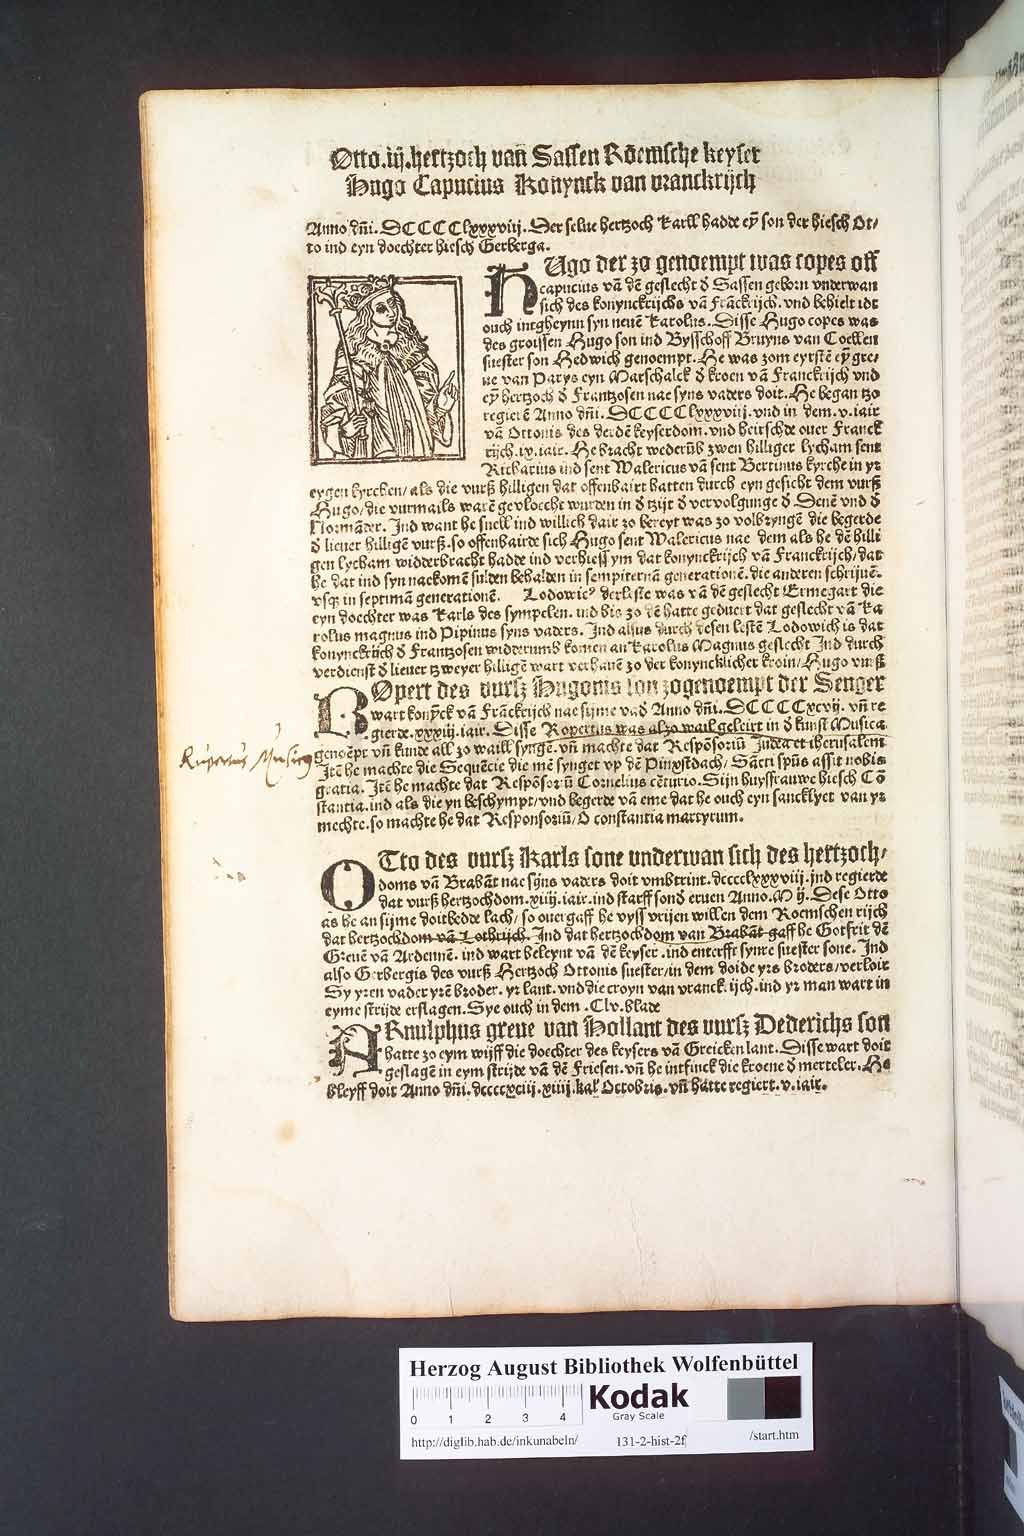 Otto.iij.hertzoch van̄ Sassen Rōemsche keyser
Hugo Capucius Konynck van vranckrijch
Anno dn̄i. DCCCClxxxviij. Der selue hertzoch Karll hadde eȳ son der hiesch Ot/
to ind eyn doechter hiesch Gerberga.
HUgo der zo genoempt was copes off
capucius vā dē geslecht d̄ Sassen geborn vnderwan
sich des konynckrijchs vā Frāckrijch. vnd behielt idt
ouch intgheynn syn neuē Karolus. Disse Hugo copes was
des groissen Hugo son ind Bysschoff Bruyns van Coellen
suester son Hedwich genoempt. He was zom eyrstē eȳ gre/
ue van Parys eyn Marschalck d̄ kroen vā Franckrijch vnd
eȳ hertzoch d̄ Frantzosen nae syns vaders doit. He began tzo
regierē Anno dn̄i. DCCCClxxxviij. vnd in dem .v. iair
vā Ottonis des derdē keyserdom. vnd heirschde ouer Franck
rijch .ix. iair. He bracht wederūb zwen hilliger lycham sent
Richarius ind sent Walericus vā sent Bertinus kyrche in yr
eygen kyrchen/ als die vurß hilligen dat offenbairt hatten durch eyn gesicht dem vurß
Hugo/ die vurmails warē gevloecht wurden in d̄ tzijt d̄ vervolgunge d̄ Denē vnd d̄
Normāder. Ind want he snell ind willich dair zo bereyt was zo volbryngē die begerde
d̄ lieuer hilligē vurß. so offenbairde sich Hugo sent Walericus nae dem als he dē hilli
gen lycham widderbracht hadde ind verhiess ym dat konynckrijch vā Franckrijch/ dat
he dat ind syn nackomē sulden behalden in sempiternā generationē. die anderen schrijuē.
vsqȝ in septimā generationē. Lodowicꝰ der leste was vā dē geslecht Ermegart die
eyn doechter was Karls des sympelen. ind bis zo dē hatte geduert dat geslecht vā Ka
rolus magnus ind Pipinus syns vaders. Ind alsus durch desen lestē Lodowich is dat
konynckrijch d̄ Frantzosen widderumb komen an Karolus Magnus geslecht Ind durch
verdienst d̄ lieuer tzweyer hilligē wart verhauē zo der konyncklicher kroin/ Hugo vurß
ROpert des vursz Hugonis son zogenoempt der Senger
wart konȳck vā Frāckrijch nae sijme vad̄ Anno dn̄i. DCCCCxcvij. vn̄ re
gierde .xxxiij. iair. Disse Ropertus was alzo wail geleirt in d̄ kunst Musica
genoēpt vn̄ kunde all zo waill syngē. vn̄ machte dat Respōsoriū Judea et iherusalem
Jtē he machte die Sequēcie die mē synget vp dē Pinxstdach/ Sācti spūs assit nobis
gratia. Jtē he machte dat Respōsoriū Cornelius cēturio. Sijn huysfrauwe hiesch Cō
stantia. ind als die yn beschympt/ vnd begerde vā eme dat he ouch eyn sancklyet van yr
mechte. so machte he dat Responsoriū/ O constantia martyrum.
Rupertus Musicus
OTto des vursz Karls sone vnderwan sich des hertzoch/
doms vā Brabāt nae sijns vaders doit vmbtrint. dcccclxxxviij. ind regierde
dat vurß hertzochdom. xiiij. iair. ind starff sond̄ eruen Anno. M ij. Dese Otto
as he an sijme doitbedde lach/ so ouergaff he vyss vrijen willen dem Roemschen rijch
dat hertzochdom vā Lothrijch. Ind dat hertzochdom van Brabāt gaff he Gotfrit dē
Greuē vā Ardennē. ind wart beleynt vā dē keyser. ind enterfft synre suester sone. Ind
also Gerbergis des vurß Hertzoch Ottonis suester/ in dem doide yrs broders/ verloir
Sy yren vader yrē broder. yr lant. vnd die croyn van vranckrijch. ind yr man wart in
eyme strijde erslagen. Sye ouch in dem .Clv. blade
ARnulphus greue van Hollant des vursz Dederichs son
hatte zo eym wijff die doechter des keysers vā Greicken lant. Disse wart doit
geslagē in eym strijde vā dē Friesen. vn̄ he intfinck die kroene d̄ merteler. He
bleyff doit Anno dn̄i. dccccxciij. xiiij. kal' Octobris. vn̄ hatte regiert. v. iair.
Herzog August Bibliothek Wolfenbüttel
0 1 2 3 4
Kodak
Gray Scale
http://diglib.hab.de/inkunabeln/ 131-2-hist-2f /start.htm